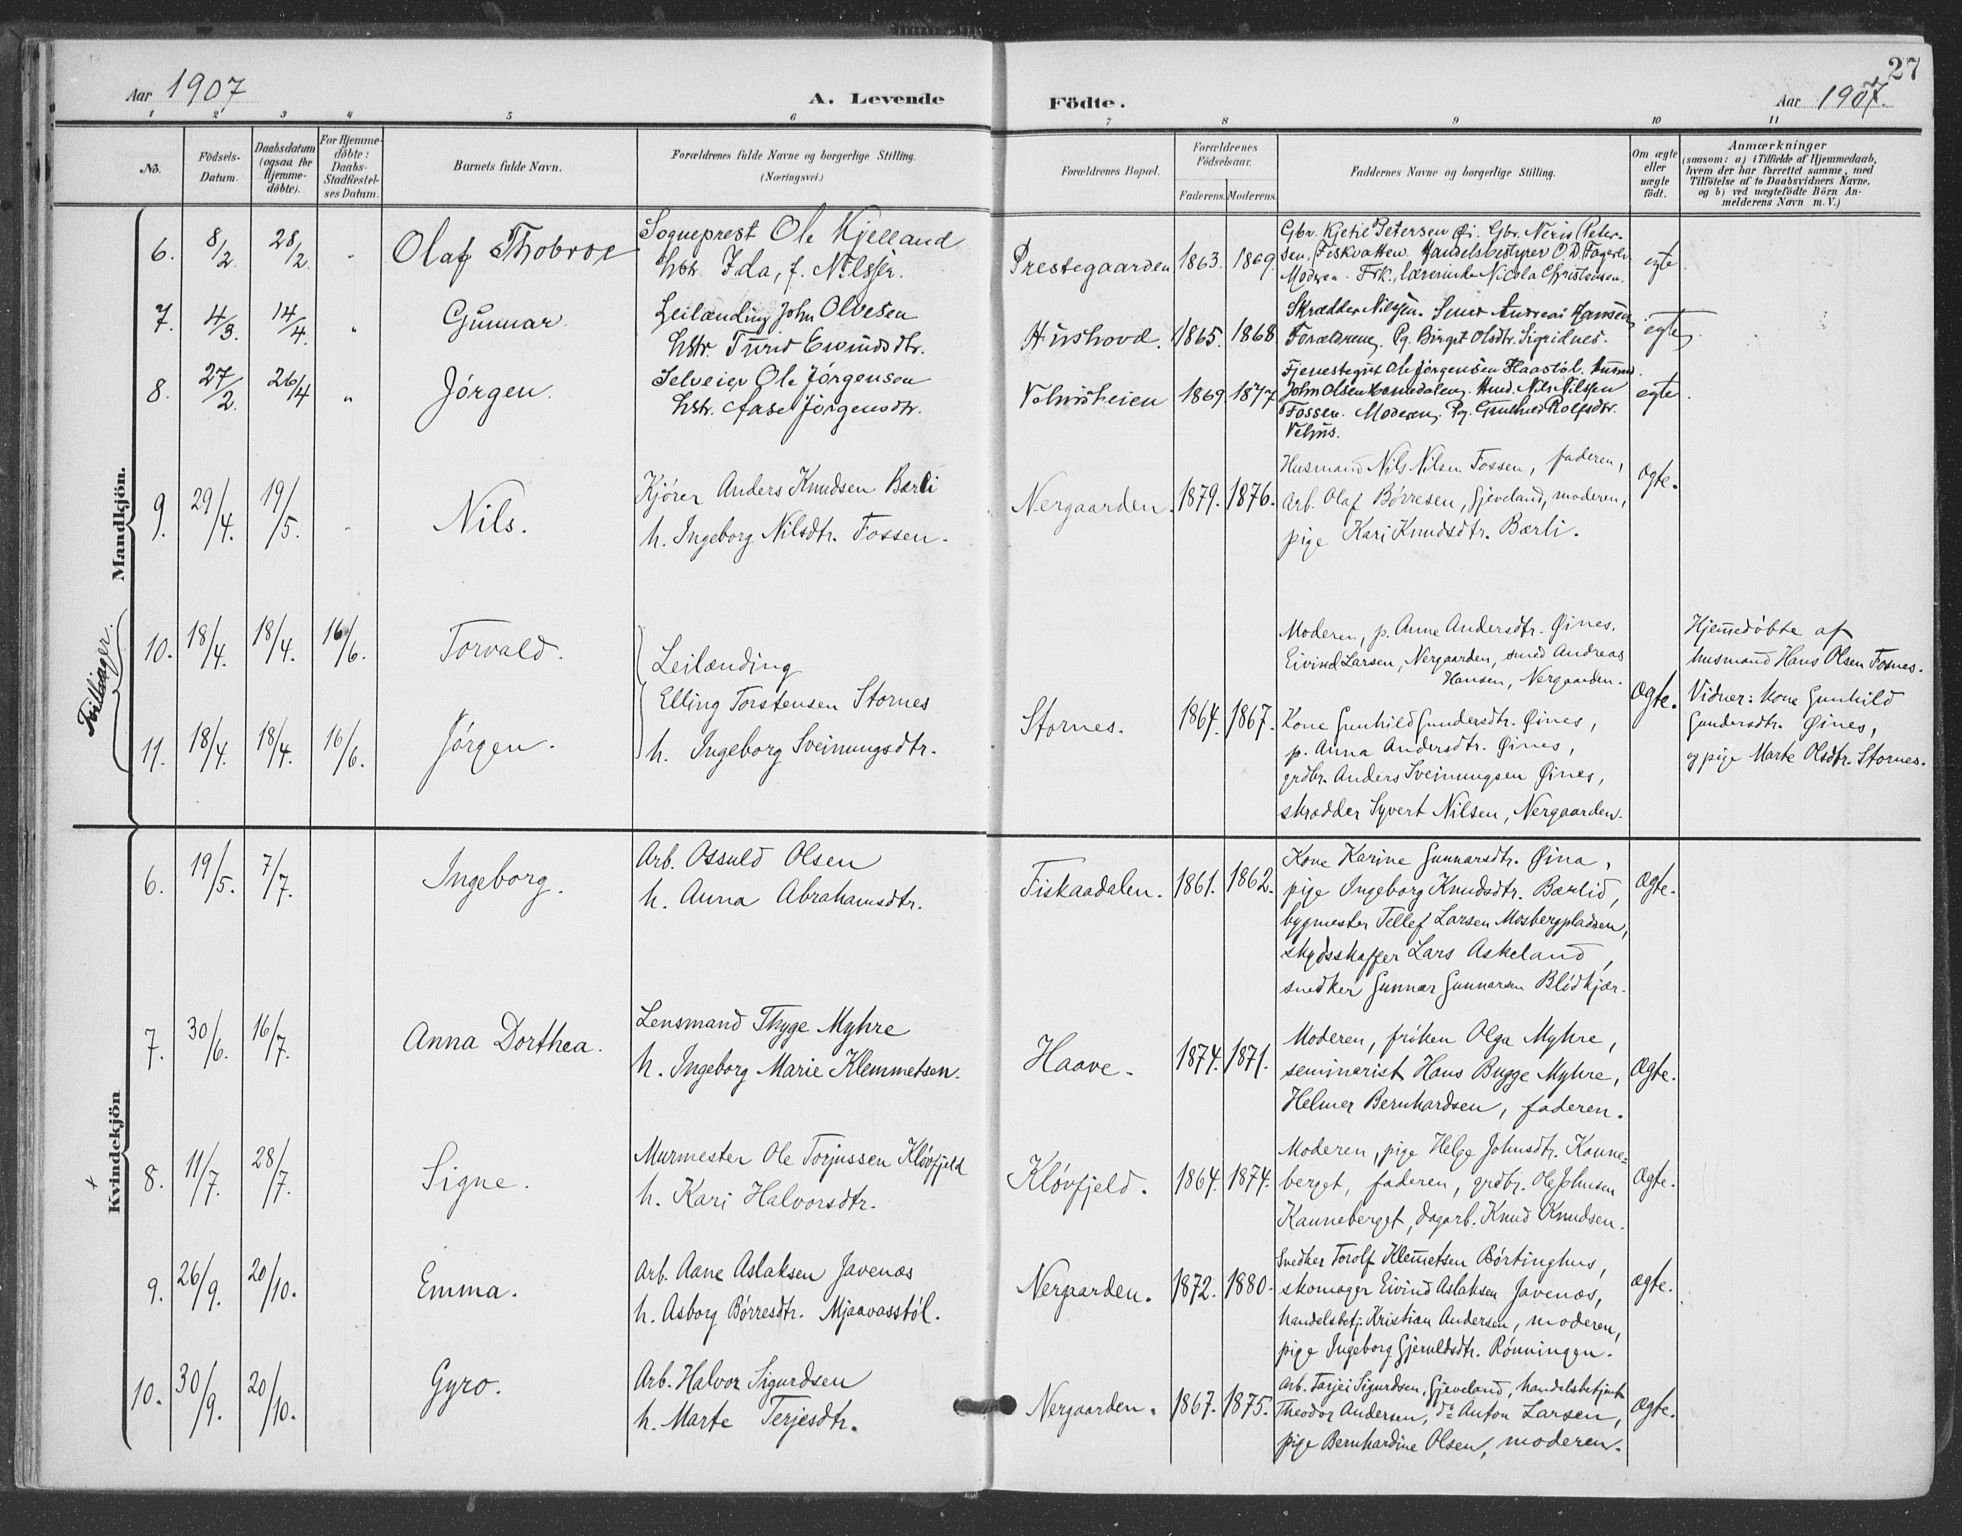 27
Aar 1907
A. Levende
Födte.
Aar 1907.
1 2 3 4 5 6 7 8 9 10 11
No.
Födsels-
Datum.
Daabsdatum
(ogsaa for
Hjemme-
döbte).
For Hjemme-
döbte:
Daabs-
Stadfæstel-
ses Datum.
Barnets fulde Navn.
Forældrenes fulde Navne og borgerlige Stilling.
(Næringsvei.)
Forældrenes Bopæl.
Forældrenes
Födselsaar.
Faderens. Moderens.
Faddernes Navne og borgerlige Stilling.
Om ægte
eller
uægte
födt.
Anmærkninger
(saasom: a) i Tilfælde af Hjemmedaab,
hvem der har forrettet samme, med
Tilföielse af to Daabsvidners Navne.
og b) ved uægtefödte Börn An-
melderens Navn m. V.)
Mandkjön.
6. 8/2 28/2 Olaf Thobroe
Sogneprest Ole Kjelland
hstr. Ida, f. Nilssen.
Prestegaarden 1863. 1869.
Gbr. Kjetil Petersen Øi. Gbr. Peter-
sen, Fiskvatten. Handelsbestyrer O. D.
Moderen. Frk., lærerinde Nicola Christensen.
egte
7. 4/3 14/4 Gunnar
Leilænding John Olvesen
hstr. Turid Eivindsdtr.
Hushovd. 1865. 1868.
Skrædder Nilsen. Smed Andreas Hansen,
Forældrene, Pg. Birgit Olsdtr. Sigridnes.
egte
8. 27/2 26/4 Jörgen.
Selveier Ole Jörgensen
hstr. Aase Jörgensdtr.
Vehusheien 1869. 1877
Tjenestegut Ole Jörgensen Haastöl.
John Olsen Hus. Nils Nilssen
Fossen. Moderen, Pg. Gunhild Rolfsdtr.
Vehus.
egte.
9. 29/4. 19/5. Nils.
Kjörer Anders Knudsen Bærli
h. Ingeborg Nilsdtr. Fossen.
Nergaarden. 1879. 1876.
Husmand Nils Nilsen Fossen, faderen,
Arb. Olaf Börresen, Gjeveland, moderen,
pige Kari Knudsdtr. Bærli.
Ægte.
Tvillinger.
10. 18/4. 18/4. 16/6. Torvald.
Leilænding
Elling Torstensen Stornes
h. Ingeborg Sveinungsdtr.
11. 18/4. 18/4. 16/6. Jörgen.
Stornes. 1864. 1867.
Moderen, p. Anne Andersdtr. Øines.
Eivind Larsen, Nergaarden, smed Andreas
Hansen, Nergaarden.
Kone Gunhild Gundersdtr. Øines,
p. Anna Andersdtr. Øines,
grdbr. Anders Sveinungsen Øines,
skrædder Syvert Nilsen, Nergaarden.
Ægte.
Hjemmedöbte af
husmand Hans Olsen Fosnes.
Vidner: Kone Gunhild
Gundersdtr. Øines,
og pige Marte Olsdtr. Stornes.
Kvindekjön
6. 19/5. 7/7. Ingeborg.
Arb. Ossuld Olsen
h. Anna Abrahamsdtr.
Fiskaadalen. 1861. 1862.
Kone Karine Gunnarsdtr. Øina,
pige Ingeborg Knudsdtr. Bærlid,
bygmester Tellef Larsen Mosbergpladsen,
skydsskaffer Lars Askeland,
snedker Gunnar Gunnarsen Blödkjær.
Ægte.
7. 30/6. 16/7. Anna Dorthea.
Lensmand Thyge Myhre
h. Ingeborg Marie Klemmetsen.
Haave. 1874. 1871.
Moderen, fröken Olga Myhre,
seminarist Hans Bugge Myhre,
Helmer Bernhardsen, faderen.
Ægte.
8. 11/7. 28/7. Signe.
Murmester Ole Torjussen Klövfjeld
h. Kari Halvorsdtr.
Klövfjeld. 1864. 1874.
Moderen, pige Helge Johnsdtr. Kanne-
berget, faderen, grdbr. Ole Johnsen
Kanneberget, dagarb. Knud Knudsen.
Ægte.
9. 26/9. 20/10. Emma.
Arb. Aane Aslaksen Javenæs
h. Asborg Börresdtr. Mjaavasstöl.
Nergaarden. 1872. 1880.
Snedker Torolf Klemetsen Börtinghus,
skomager Eivind Aslaksen Javenæs,
handelsbetj. Kristian Andersen, moderen,
pige Ingeborg Gjeruldsdtr. Rönningen.
ægte.
10. 30/9. 20/10. Gyro.
Arb. Halvor Sigurdsen
h. Marte Terjesdtr.
Nergaarden. 1867. 1875.
Arb. Tarjei Sigurdsen, Gjeveland, handelsbetjent
Theodor Andersen, do Anton Larsen,
pige Bernhardine Olsen, moderen.
Ægte.